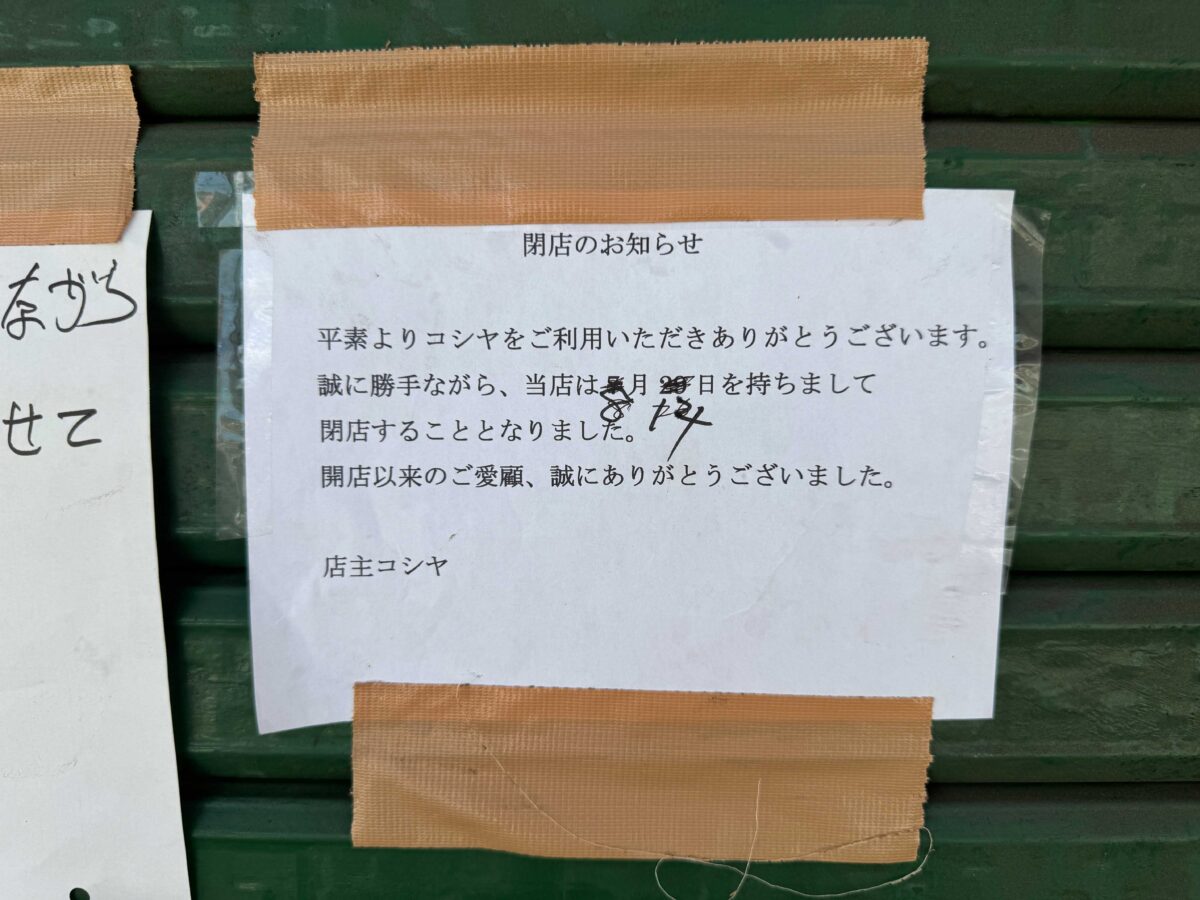 ながら
せて
閉店のお知らせ
平素よりコシヤをご利用いただきありがとうございます。
誠に勝手ながら、当店は8月14日を持ちまして
閉店することとなりました。
開店以来のご愛顧、誠にありがとうございました。
店主コシヤ